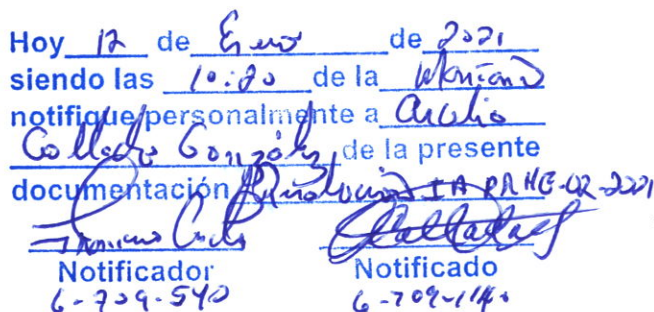 Hoy 12 de Enero de 2021
siendo las 10:20 de la Mañana
notifique personalmente a
Collado González, de la presente
documentación Resolución IA PRHE-02-2021
Notificador Notificado
6-709-540